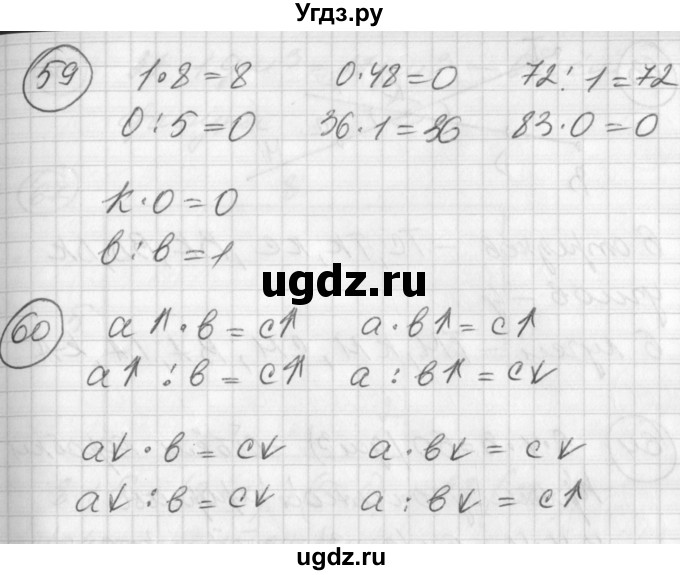 Угдз.ру
59 1·8=8 0·48=0 72:1=72
0:5=0 36·1=36 83·0=0
k·0=0
в:в=1
ugdz.ru
60 a↑·в=c↑ a·в↑=c↑
a↑:в=c↑ a:в↑=c↓
a↓·в=c↓ a·в↓=c↓
a↓:в=c↓ a:в↓=c↑
ugdz.ru